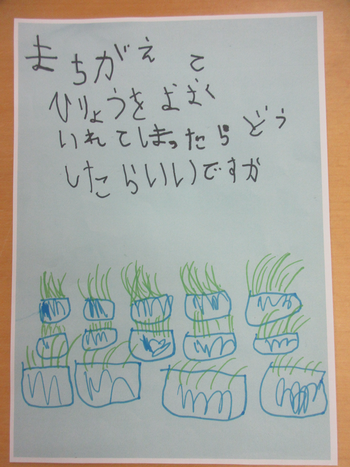 まちがえて
ひりょうをおおく
いれてしまったらどう
したらいいですか